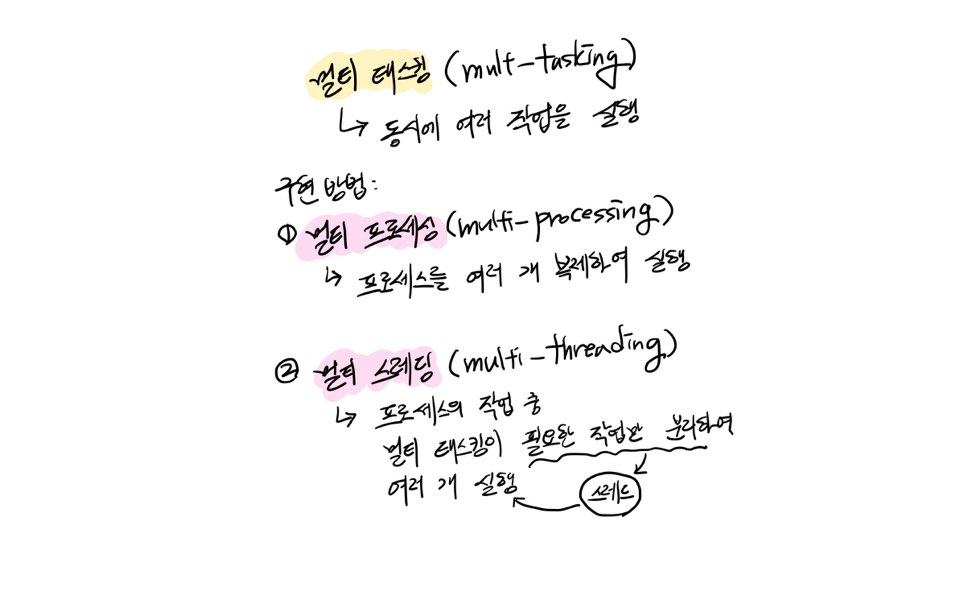 멀티 태스킹 (mult-tasking)
↳ 동시에 여러 작업을 실행
구현 방법:
① 멀티 프로세싱 (multi-processing)
↳ 프로세스를 여러 개 복제하여 실행
② 멀티 스레딩 (multi-threading)
↳ 프로세스의 작업 중
멀티 태스킹이 필요한 작업만 분리하여
여러 개 실행
스레드